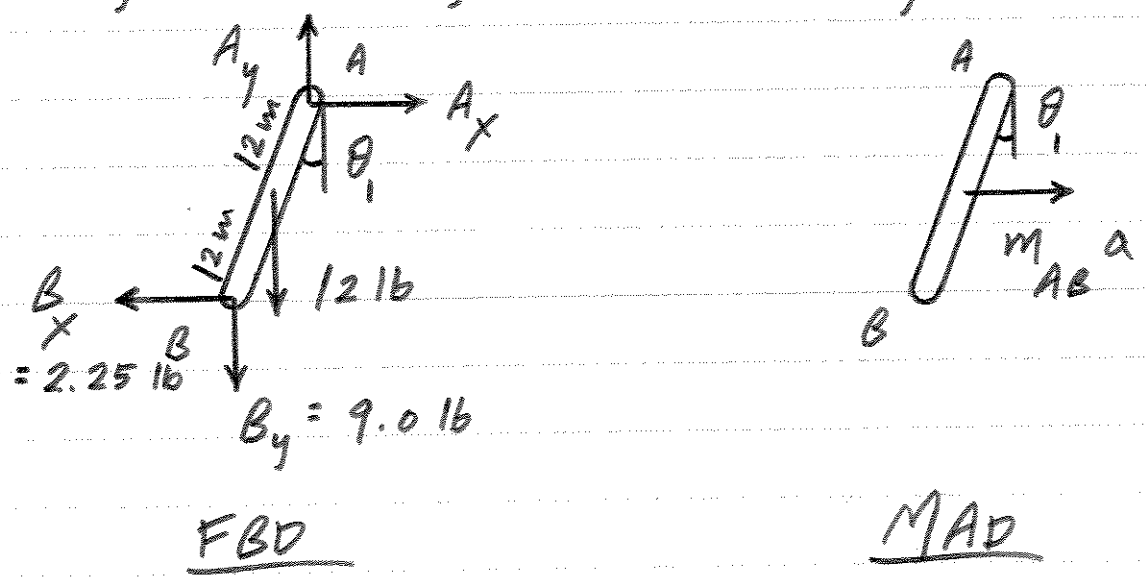 A_y A
A_x
12 m
θ_1
12 m
12 lb
B_x
= 2.25 lb
B
B_y = 9.0 lb
FBD
A
θ_1
m_AB a
B
MAD